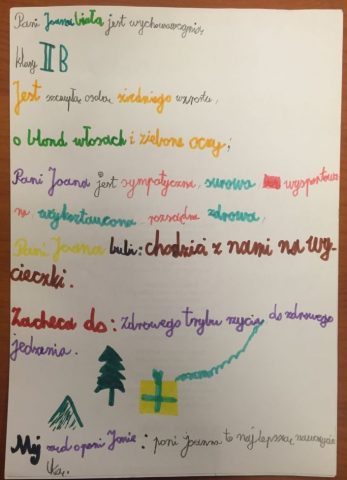 Pani Joanna biała jest wychowawczynią
klasy II B
Jest szczupłą osobą średniego wzrostu,
o blond włosach i zielone oczy,
Pani Joana jest sympatyczna, surowa wysportowa
na, wykształcona, rozsądna zdrowa,
Pani Joanna lubi: chodzić z nami na wy-
cieczki.
Zacheca do: Zdrowego trybu życia, do zdrowego
jedzenia.
Mój o pani Joanie: pani joanna to najlepsza nauczycie
lka.